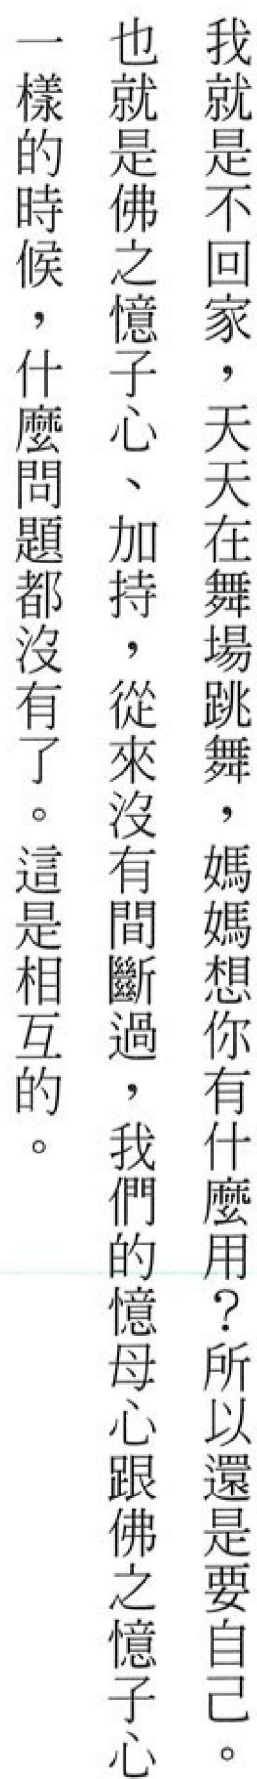 我就是不回家，天天在舞場跳舞，媽媽想你有什麼用？所以還是要自己。
也就是佛之憶子心、加持，從來沒有間斷過，我們的憶母心跟佛之憶子心
一樣的時候，什麼問題都沒有了。這是相互的。